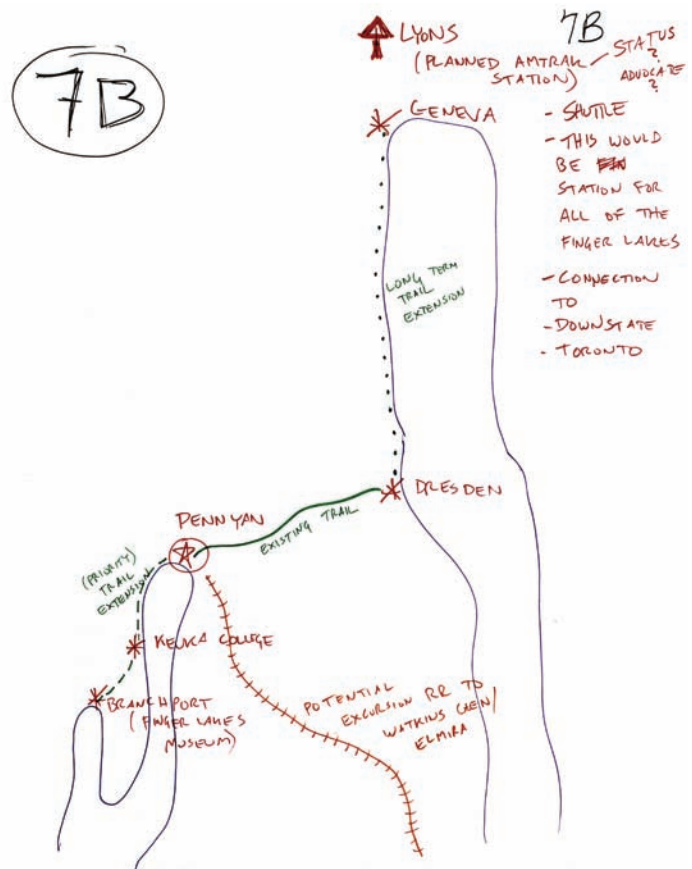 7B
7B
LYONS
(PLANNED AMTRAK
STATION)
STATUS
?
ADVOCATE
?
GENEVA
- SHUTTLE
- THIS WOULD
BE
STATION FOR
ALL OF THE
FINGER LAKES
- CONNECTION
TO
- DOWNSTATE
- TORONTO
LONG TERM
TRAIL
EXTENSION
DRESDEN
PENN YAN
EXISTING TRAIL
(PRIORITY)
TRAIL
EXTENSION
KEUKA COLLEGE
BRANCHPORT
(FINGER LAKES
MUSEUM)
POTENTIAL
EXCURSION RR TO
WATKINS GLEN/
ELMIRA